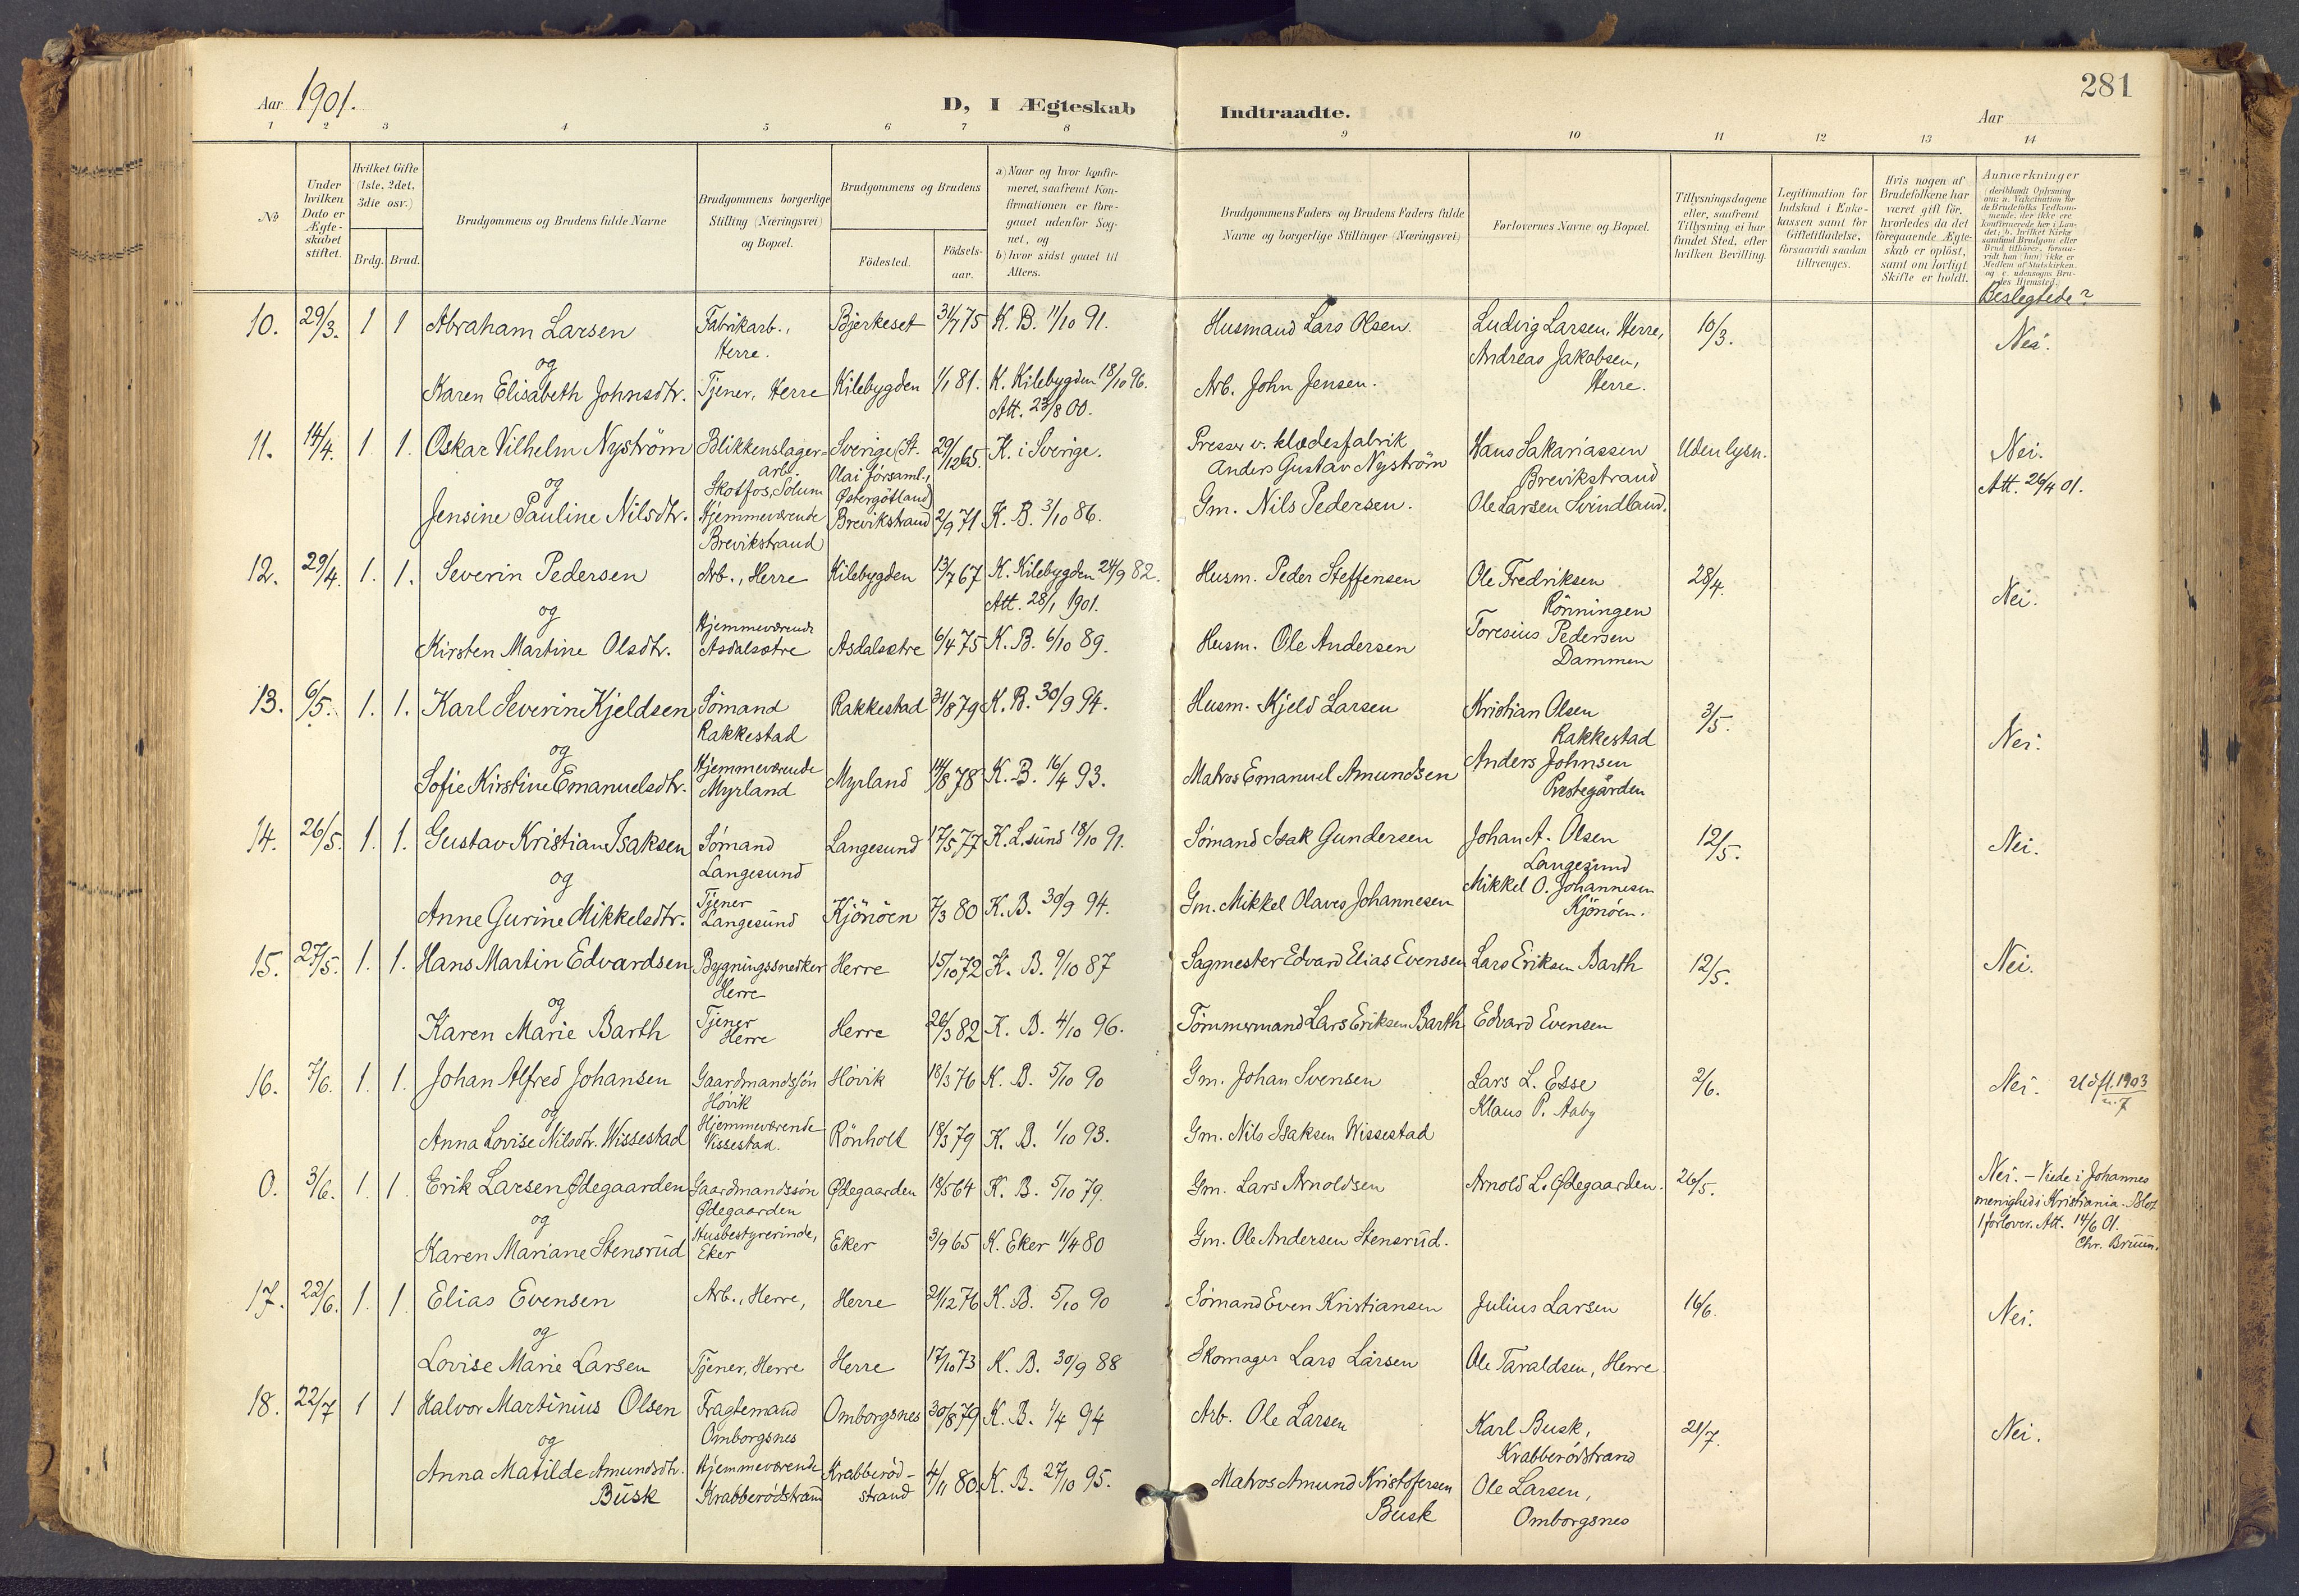 281
Aar 1901.
D, I Ægteskab Indtraadte.
Aar
1 2 3 4 5 6 7 8 9 10 11 12 13 14
No
Under hvilken Dato er Ægteskabet stiftet.
Hvilket Gifte (1ste, 2det, 3die osv.)
Brdg. Brud.
Brudgommens og Brudens fulde Navne
Brudgommens borgerlige Stilling (Næringsvei) og Bopæl.
Brudgommens og Brudens
Födested.
Födsels-aar.
a) Naar og hvor konfirmeret, saafremt Konfirmationen er foregaaet udenfor Sognet, og
b) hvor sidst gaaet til Alters.
Brudgommens Faders og Brudens Faders fulde Navne og borgerlige Stillinger (Næringsvei)
Forlovernes Navne og Bopæl.
Tillysningsdagene eller, saafremt Tillysning ei har fundet Sted, efter hvilken Bevilling.
Legitimation for Indskud i Enkekassen samt for Giftetilladelse, forsaavidt saadan tiltrænges.
Hvis nogen af Brudefolkene har været gift för, hvorledes da det foregaaende Ægteskab er oplöst, samt om lovligt Skifte er holdt.
Anmærkninger
(deriblandt Oplysning om: a. Vakcination for de Brudefolks Vedkommende, der ikke ere konfirmerede her i Landet; b. hvilket Kirkesamfund Brudgom eller Brud tilhører, forsaavidt han (hun) ikke er Medlem af Statskirken, og c. udensogns Brudes Hjemsted.
Beslegtede?
10. 29/3. 1 1 Abraham Larsen Fabrikarb., Herre. Bjerkeset 31/7 75 K. B. 11/10 91. Husmand Lars Olsen. Ludvig Larsen, Herre, 10/3. Nei.
og
Andreas Jakobsen, Herre.
Karen Elisabeth Johnsdtr. Tjener, Herre Kilebygden 1/1 81. K. Kilebygden 18/10 96. Att. 23/8 00. Arb. John Jensen.
11. 14/4. 1. 1. Oskar Vilhelm Nyström Blikkenslager-arb. Skotfos, Solum Sverige (St. Olai församl., Østergötland) 29/12 65. K. i Sverige. Presser v. klædesfabrik Anders Gustav Nyström Hans Sakariassen Brevikstrand Uden lysn. Nei.
og
Att. 26/4 01.
Jensine Pauline Nilsdtr. Hjemmeværende Brevikstrand Brevikstrand 2/9 71 K. B. 3/10 86. Gm. Nils Pedersen. Ole Larsen Svindland.
12. 29/4. 1. 1. Severin Pedersen Arb., Herre Kilebygden 13/7 67 K. Kilebygden 24/9 82. Att. 28/1 1901. Husm. Peder Steffensen Ole Fredriksen Rönningen 28/4. Nei.
og
Kirsten Martine Olsdtr. Hjemmeværende Asdalsætre Asdalsætre 6/4 75 K. B. 6/10 89. Husm. Ole Andersen Toresius Pedersen Dammen
13. 6/5. 1. 1. Karl Severin Kjeldsen Sömand Rakkestad Rakkestad 31/8 79 K. B. 30/9 94. Husm. Kjeld Larsen Kristian Olsen Rakkestad 3/5. Nei.
og
Sofie Kirstine Emanuelsdtr. Hjemmeværende Myrland Myrland 14/8 78 K. B. 16/4 93. Matros Emanuel Amundsen Anders Johnsen Prestegården
14. 26/5. 1. 1. Gustav Kristian Isaksen Sömand Langesund Langesund 17/5 77 K. L.sund 18/10 91. Sömand Isak Gundersen Johan A. Olsen Langesund 12/5. Nei.
og
Anne Gurine Mikkelsdtr. Tjener Langesund Kjönöen 7/3 80 K. B. 30/9 94. Gm. Mikkel Olaves Johannesen Mikkel O. Johannesen Kjönöen.
15. 27/5. 1. 1. Hans Martin Edvardsen Bygningssnedker Herre Herre 15/10 72 K. B. 9/10 87 Sagmester Edvard Elias Evensen Lars Eriksen Barth 12/5. Nei.
og
Karen Marie Barth Tjener Herre Herre 26/3 82 K. B. 4/10 96. Tömmermand Lars Eriksen Barth Edvard Evensen
16. 7/6. 1. 1. Johan Alfred Johansen Gaardmandssön Hövik Hövik 18/3 76 K. B. 5/10 90 Gm. Johan Svensen Lars L. Esse 2/6. Nei. Udfl. 1903 n. 7
og
Klaus P. Aaby
Anna Lovise Nilsdtr. Wissestad Hjemmeværende Wissestad. Rönholt 18/3 79 K. B. 1/10 93. Gm. Nils Isaksen Wissestad
0. 3/6. 1. 1 Erik Larsen Ødegaarden Gaardmandssön Ødegaarden Ødegaarden 18/5 64 K. B. 5/10 79. Gm. Lars Arnoldsen Arnold L. Ødegaarden. 26/5. Nei. - Viede i Johannes menighed i Kristiania. Blot 1 forlover. Att. 14/6 01. Chr. Bruun.
og
Karen Mariane Stensrud Husbestyrerinde, Eker Eker 3/9 65 K. Eker 11/4 80 Gm. Ole Andersen Stensrud.
17. 22/6. 1. 1 Elias Evensen Arb., Herre, Herre 21/12 76 K. B. 5/10 90 Sömand Even Kristiansen Julius Larsen 16/6. Nei.
og
Lovise Marie Larsen Tjener, Herre Herre 17/10 73 K. B. 30/9 88 Skomager Lars Larsen Ole Taraldsen, Herre
18. 22/7 1 1 Halvor Martinius Olsen Fragtemand Omborgsnes Omborgsnes 30/8 79 K. B. 1/4 94 Arb. Ole Larsen Karl Busk, Krabberödstrand 21/7. Nei.
og
Anna Matilde Amundsdtr. Busk Hjemmeværende Krabberödstrand Krabberöd-strand 4/11 80. K. B. 27/10 95. Matros Amund Kristofersen Busk Ole Larsen, Omborgsnes